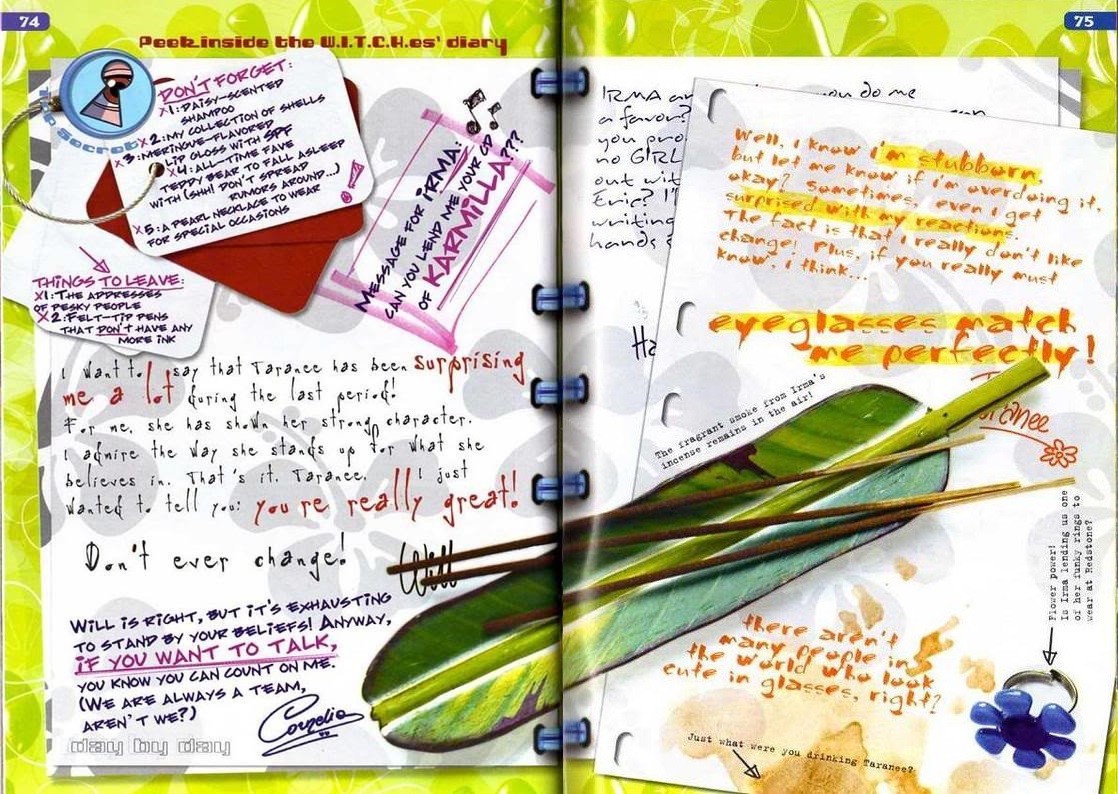 74
Peek inside the W.I.T.C.H.es' diary
Top Secret
DON'T FORGET:
X1: DAISY-SCENTED
SHAMPOO
X2: MY COLLECTION OF SHELLS
X3: MERINGUE-FLAVORED
LIP GLOSS WITH SPF
X4: ALL-TIME FAVE
TEDDY BEAR TO FALL ASLEEP
WITH (SHH! DON'T SPREAD
RUMORS AROUND...)
X5: A PEARL NECKLACE TO WEAR
FOR SPECIAL OCCASIONS
THINGS TO LEAVE:
X1: THE ADDRESSES
OF PESKY PEOPLE
X2: FELT-TIP PENS
THAT DON'T HAVE ANY
MORE INK
MESSAGE FOR IRMA:
CAN YOU LEND ME YOUR CD
OF KARMILLA???
I want to say that Taranee has been surprising
me a lot during the last period!
For me, she has shown her strong character.
I admire the way she stands up for what she
believes in. That's it. Taranee, I just
wanted to tell you: you're really great!
Don't ever change!
Will
WILL IS RIGHT, BUT IT'S EXHAUSTING
TO STAND BY YOUR BELIEFS! ANYWAY,
IF YOU WANT TO TALK,
YOU KNOW YOU CAN COUNT ON ME.
(WE ARE ALWAYS A TEAM,
AREN'T WE?)
Cornelia
day by day
75
IRMA an you do me
a favor? can
you pro
no GIRL
out wit
Eric? I'
writing
hands
Ha
Well, i know i'm stubborn,
but let me know if i'm overdoing it,
okay? Sometimes, even i get
surprised with my reactions.
The fact is that i really don't like
change! Plus, if you really must
know, i think...
eyeglasses match
me perfectly!
Taranee
The fragrant smoke from Irma's
incense remains in the air!
Flower power!
Is Irma lending us one
of her funky rings to
wear at Redstone?
there aren't
many people in
the world who look
cute in glasses, right?
Just what were you drinking Taranee?